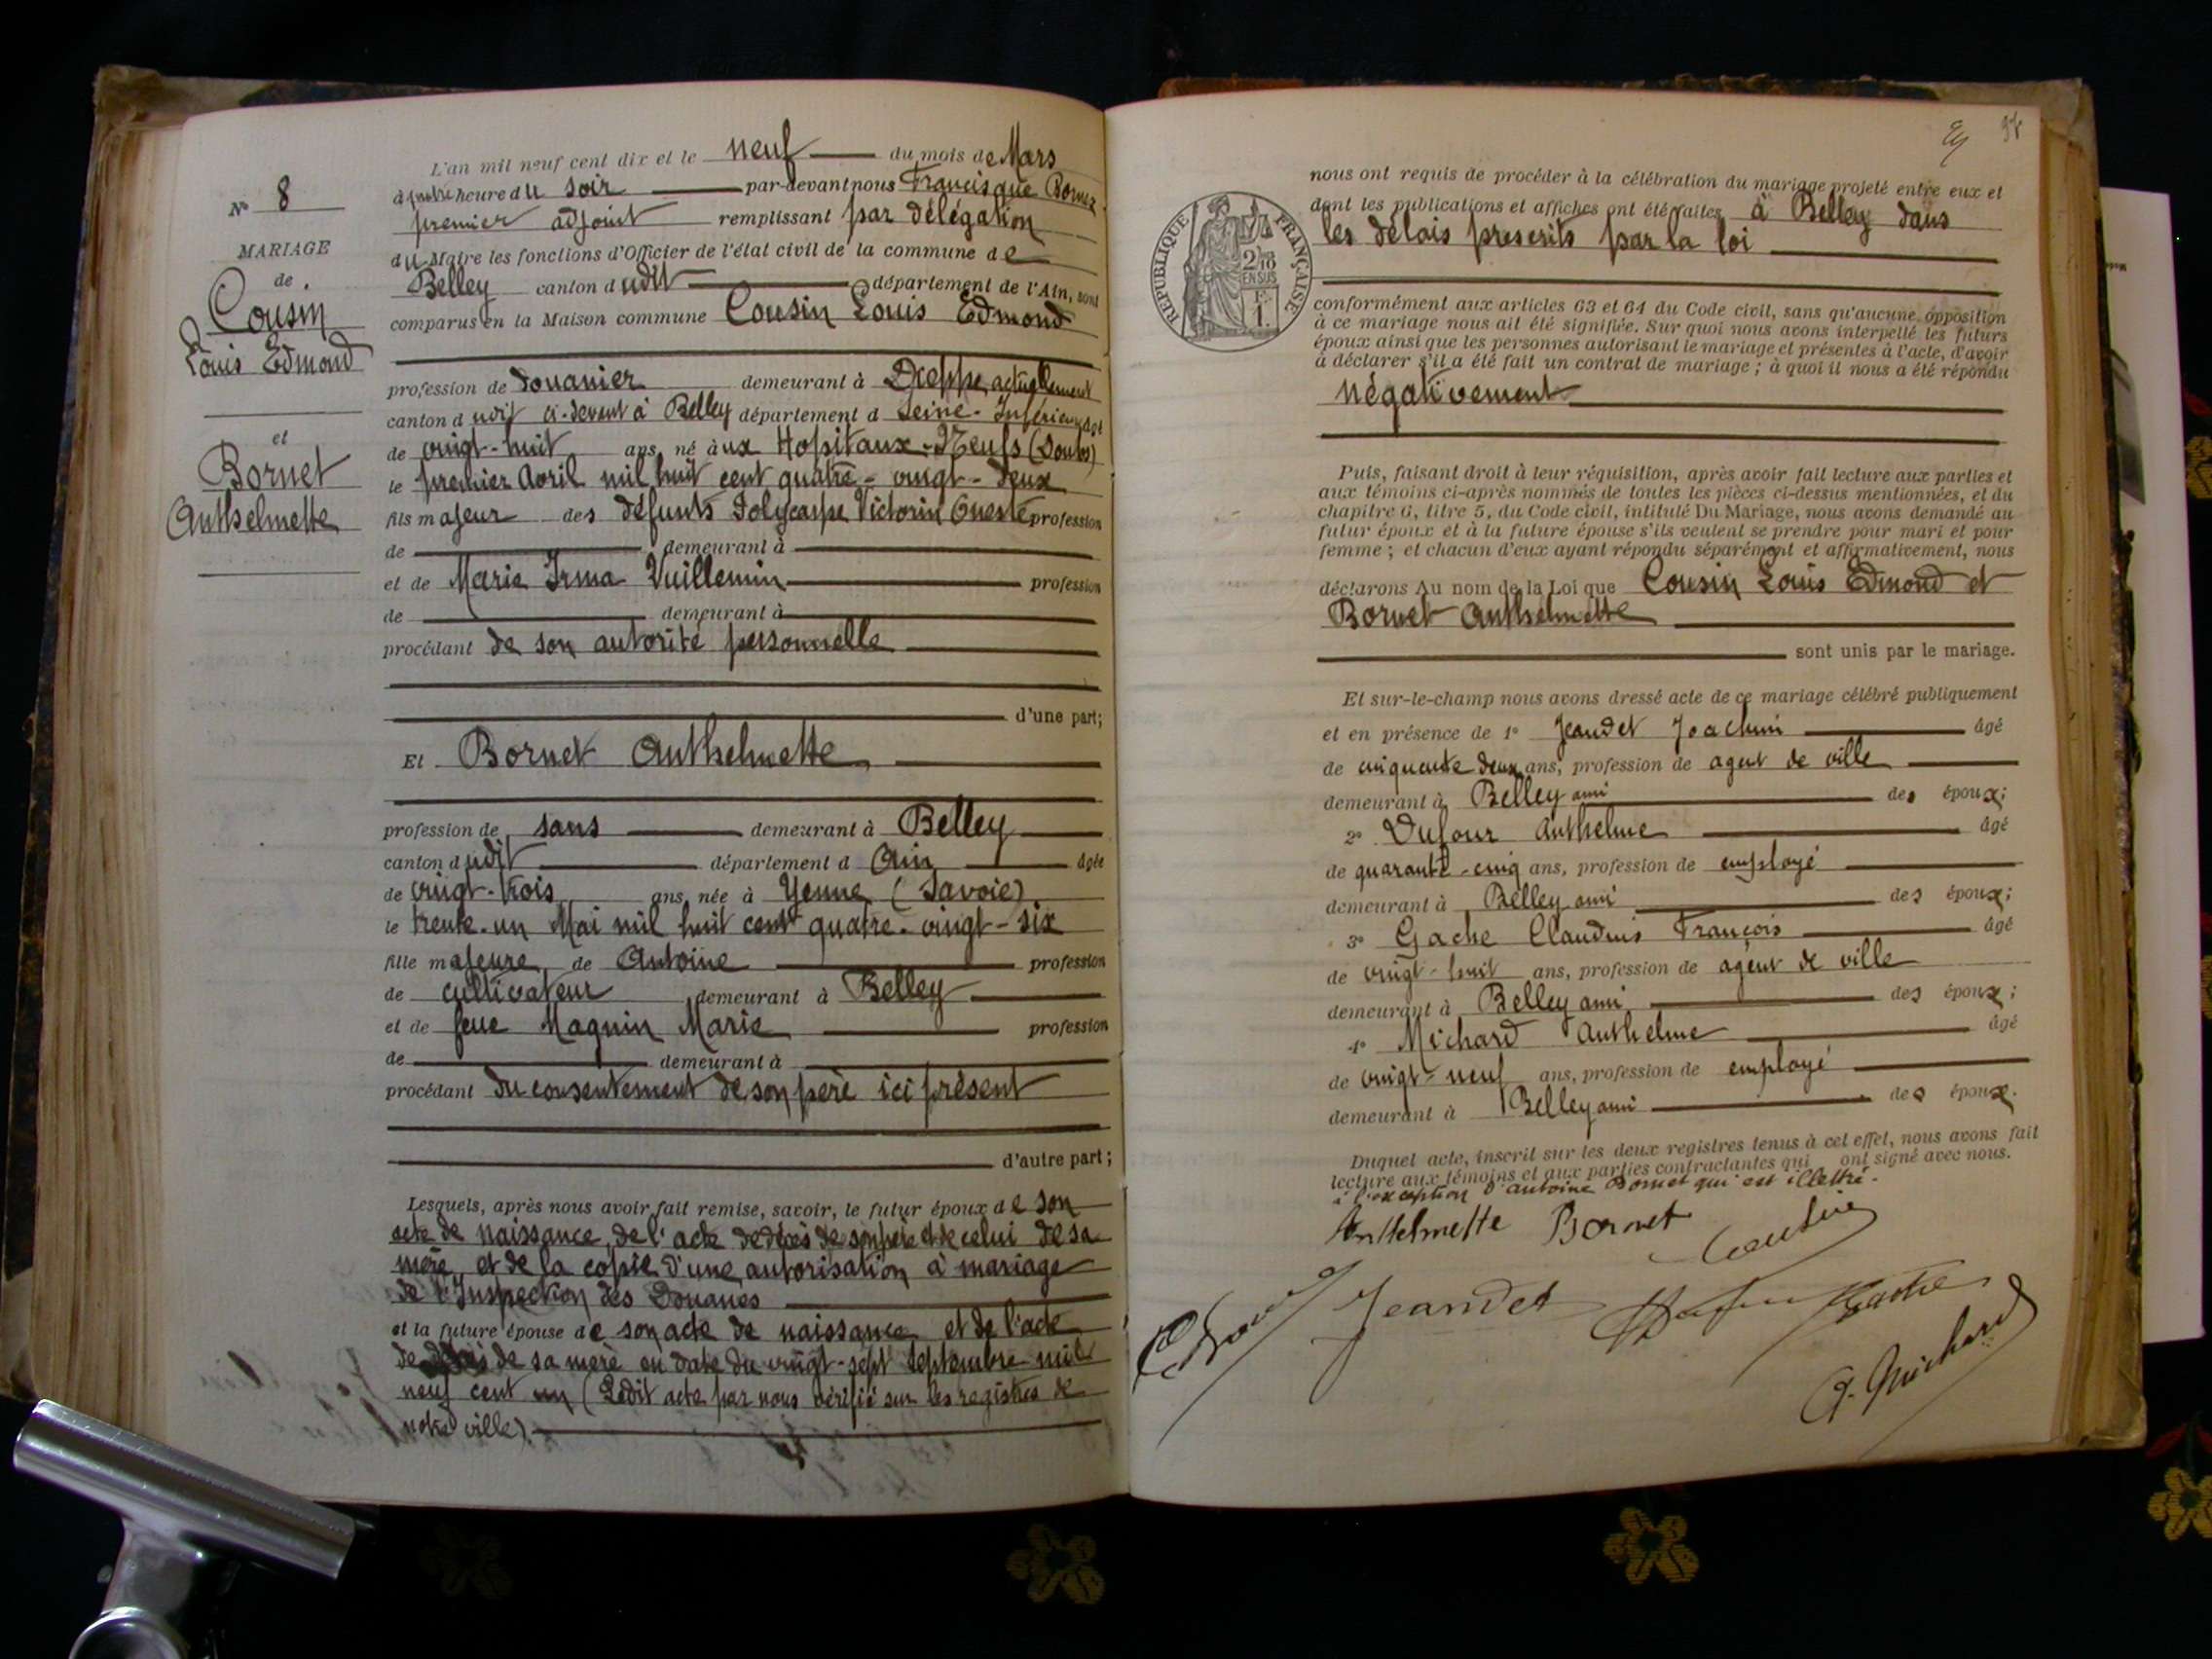 N° 8
MARIAGE
de
Cousin
Louis Edmond
et
Bornet
Anthelmette
L'an mil neuf cent dix et le neuf du mois de Mars
à quatre heure du soir par-devant nous Francisque
premier adjoint remplissant par délégation
du Maire les fonctions d'Officier de l'état civil de la commune de
Belley canton dudit département de l'Ain, sont
comparus en la Maison commune Cousin Louis Edmond
profession de douanier demeurant à Dieppe actuellement
canton dudit ci-devant à Belley département d Seine-Inférieure
de vingt-huit ans, né aux Hopitaux-Neufs (Doubs)
le premier Avril mil huit cent quatre-vingt-deux
fils majeur des défunts Polycarpe Victorin Onesté profession
de demeurant à
et de Marie Irma Vuillemin profession
de demeurant à
procédant de son autorité personnelle
d'une part;
Et Bornet Anthelmette
profession de sans demeurant à Belley
canton dudit département d Ain âgée
de vingt-trois ans, née à Yenne (Savoie)
le trente-un Mai mil huit cent quatre-vingt-six
fille majeure de Antoine profession
de cultivateur demeurant à Belley
et de feue Magnin Marie profession
de demeurant à
procédant du consentement de son père ici présent
d'autre part;
Lesquels, après nous avoir fait remise, savoir, le futur époux de son
acte de naissance, de l'acte de décès de son père et de celui de sa
mère et de la copie d'une autorisation à mariage
de l'Inspection des Douanes
et la future épouse de son acte de naissance et de l'acte
de décès de sa mère en date du vingt-sept Septembre mil
neuf cent un (Ledit acte par nous vérifié sur les registres de
notre ville).
RÉPUBLIQUE FRANÇAISE
2/10
EN SUS
1.
nous ont requis de procéder à la célébration du mariage projeté entre eux et
dont les publications et affiches ont été faites à Belley dans
les délais prescrits par la loi
conformément aux articles 63 et 64 du Code civil, sans qu'aucune opposition
à ce mariage nous ait été signifiée. Sur quoi nous avons interpellé les futurs
époux ainsi que les personnes autorisant le mariage et présentes à l'acte, d'avoir
à déclarer s'il a été fait un contrat de mariage; à quoi il nous a été répondu
négativement
Puis, faisant droit à leur réquisition, après avoir fait lecture aux parties et
aux témoins ci-après nommés de toutes les pièces ci-dessus mentionnées, et du
chapitre 6, titre 5, du Code civil, intitulé Du Mariage, nous avons demandé au
futur époux et à la future épouse s'ils veulent se prendre pour mari et pour
femme; et chacun d'eux ayant répondu séparément et affirmativement, nous
déclarons Au nom de la Loi que Cousin Louis Edmond et
Bornet Anthelmette
sont unis par le mariage.
Et sur-le-champ nous avons dressé acte de ce mariage célébré publiquement
et en présence de 1° Jeandet Joachim âgé
de cinquante deux ans, profession de agent de ville
demeurant à Belley ami des époux;
2° Dufour Anthelme âgé
de quarante-cinq ans, profession de employé
demeurant à Belley ami des époux;
3° Gache Claudius François âgé
de vingt-huit ans, profession de agent de ville
demeurant à Belley ami des époux;
4° Michard Anthelme âgé
de vingt-neuf ans, profession de employé
demeurant à Belley ami des époux.
Duquel acte, inscrit sur les deux registres tenus à cet effet, nous avons fait
lecture aux témoins et aux parties contractantes qui ont signé avec nous.
à l'exception d'Antoine Bornet qui est illettré.
Anthelmette Bornet
Cousin
Jeandet
Gache
A. Michard